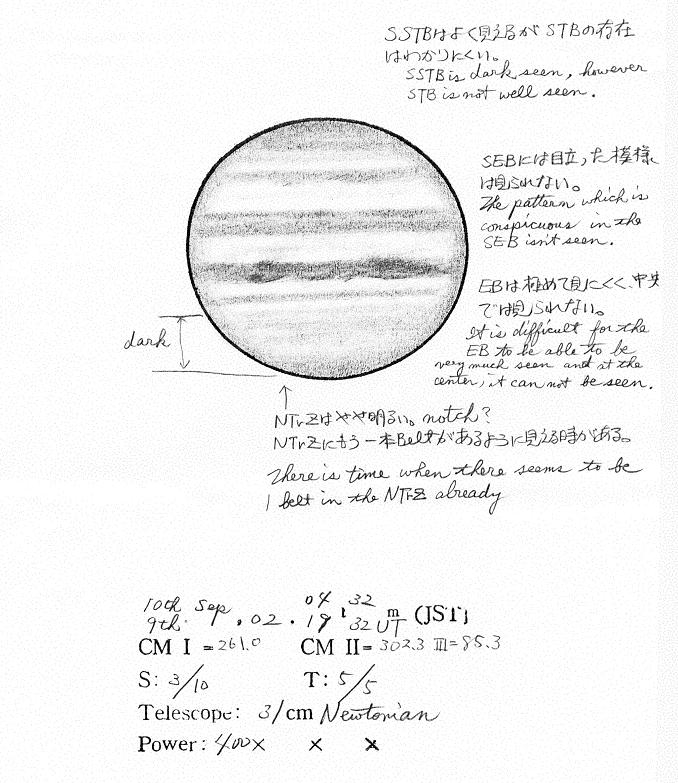 SSTBはよく見えるが STBの存在
はわかりにくい。
SSTB is dark seen, however
STB is not well seen.
SEBには目立った模様
は見られない。
The pattern which is
conspicuous in the
SEB isn't seen.
EBは極めて見にくく、中央
では見られない。
It is difficult for the
EB to be able to be
very much seen and at the
center, it can not be seen.
dark
NTrZはやや明るい。notch?
NTrZにもう一本Beltがあるように見える時がある。
There is time when there seems to be
1 belt in the NTrZ already
10th Sep 04 32
9th . 02 . 19 h 32 UT m (JST)
CM I = 261.0 CM II = 302.3 III = 85.3
S: 3/10 T: 5/5
Telescope: 31cm Newtonian
Power: 400× × ×